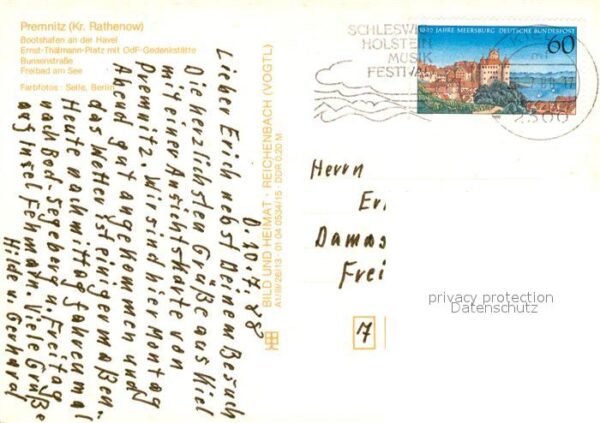 Premnitz (Kr. Rathenow)
Bootshafen an der Havel
Ernst-Thälmann-Platz mit OdF-Gedenkstätte
Bunsenstraße
Freibad am See
Farbfotos: Seile, Berlin
D. 10. 7. 88
Lieber Erich nebst Deinem Besuch
Die herzlichsten Grüße aus Kiel
mit einer Ansichtskarte von
Premnitz. Wir sind hier Montag
Abend gut angekommen und
das Wetter ist einigermaßen
Heute nachmittag fahren mal
nach Bad-Segeberg u. Freitag
auf Insel Fehmarn. Viele Grüße
Hilde u. Gerhard
BILD UND HEIMAT · REICHENBACH (VOGTL)
A1/III/26/13 01 04 0534/15 · DDR 0,20 M
SCHLESWIG
HOLSTEIN
MUSIK
FESTIVAL
1000 JAHRE MEERSBURG DEUTSCHE BUNDESPOST
60
2300
Herrn
Er
Damas
Frei
7
privacy protection
Datenschutz